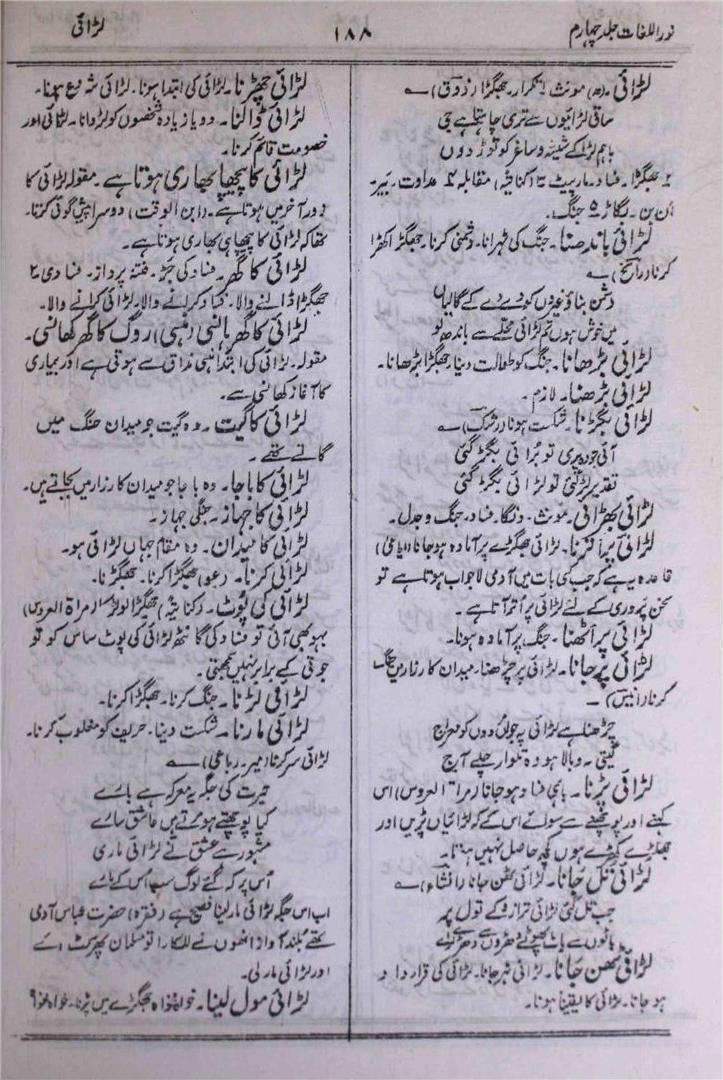 نور اللغات جلد چہارم ۱۸۸ لڑائی
لڑائی۔ (ھ) مونث ۱ تکرار۔ جھگڑا (ذوق) ؎
ساقی لڑائیوں سے تری چاہتا ہے جی
باہم لڑا کے شیشہ و ساغر کو توڑ دوں
۲ جھگڑا۔ فساد۔ مارپیٹ ۳ (کنایۃً) مقابلہ ۴ عداوت۔ بیر۔
اَن بن۔ بگاڑ ۵ جنگ۔
لڑائی باندھنا۔ جنگ کی ٹہرانا۔ دشمنی کرنا۔ جھگڑا کھڑا
کرنا (راسخ) ؎
دشمن بناؤ غیروں کو دے دے کے گالیاں
میں خوش ہوں تم لڑائی محلے سے باندھ لو
لڑائی بڑھانا۔ جنگ کو طوالت دینا۔ جھگڑا بڑھانا۔
لڑائی بڑھنا۔ لازم۔
لڑائی بگڑنا۔ شکست ہونا (رشک) ؎
آئی جو دہ پری تو بُرائی بگڑ گئی
تقدیر لڑ گئی تو لڑائی بگڑ گئی
لڑائی بھڑائی۔ مونث۔ دنگا۔ فساد۔ جنگ و جدل۔
لڑائی پر اُترنا۔ لڑائی جھگڑے پر آمادہ ہو جانا
قاعدہ یہ ہے کہ جب کی بات میں آدمی لاجواب ہوتا ہے تو
سخن پروری کے لئے لڑائی پر اُتر آتا ہے۔
لڑائی پر اُٹھنا۔ جنگ پر آمادہ ہونا۔
لڑائی پر جانا۔ لڑائی پر چڑھنا۔ میدان کارزار میں جنگ
کرنا (انیس) ؎
چڑھنا ہے لڑائی پہ جواں مردوں کو معراج
گیتی تہ و بالا ہو وہ تلوار چلے آج
لڑائی پڑنا۔ باہمی فساد ہو جانا (مراۃ العروس) اس
کہنے اور پوچھنے سے سوائے اس کے کہ لڑائیاں پڑیں اور
جھگڑے کھڑے ہوں کچھ حاصل نہیں ہوتا۔
لڑائی تُل جانا۔ لڑائی ٹھن جانا (انشاء) ؎
جب تل گئی لڑائی ترازو کے تول پر
باٹوں سے باٹ پھوٹے دھڑوں سے دھڑے
لڑائی ٹھن جانا۔ لڑائی ٹہر جانا۔ لڑائی کی قرارداد
ہو جانا۔ لڑائی کا یقینی ہونا۔
لڑائی چھڑنا۔ لڑائی کی ابتدا ہونا۔ لڑائی شروع ہونا۔
لڑائی ڈالنا۔ دو یا زیادہ شخصوں کو لڑوانا۔ لڑائی اور
خصومت قائم کرنا۔
لڑائی کا پیچھا بھاری ہوتا ہے۔ مقولہ لڑائی کا
زور آخر میں ہوتا ہے۔ (ابن الوقت) دوسرا پیش گوئی کرتا۔
تھا کہ لڑائی کا پیچھا ہی بھاری ہوتا ہے۔
لڑائی کا گھر۔ فساد کی جڑ۔ فتنہ پرداز۔ فسادی ۲
جھگڑا ڈالنے والا۔ فساد کرانے والا۔ لڑائی کرانے والا۔
لڑائی کا گھر ہانسی (ہنسی) روگ کا گھر کھانسی۔
مقولہ۔ لڑائی کی ابتدا ہنسی مذاق سے ہوتی ہے اور بیماری
کا آغاز کھانسی سے۔
لڑائی کا گیت۔ وہ گیت جو میدان جنگ میں
گاتے تھے۔
لڑائی کا باجا۔ وہ باجا جو میدان کارزار میں بجاتے ہیں۔
لڑائی کا جہاز۔ جنگی جہاز۔
لڑائی کا میدان۔ وہ مقام جہاں لڑائی ہو۔
لڑائی کرنا۔ (عو) جھگڑا کرنا۔ جھگڑنا۔
لڑائی کی پوٹ۔ (کنایۃً) جھگڑالو لڑکا (مراۃ العروس)
بہو بھی آئی تو فساد کی گانٹھ لڑائی کی پوٹ ساس کو تو
جوتی کے برابر نہیں سمجھتی۔
لڑائی لڑنا۔ جنگ کرنا۔ جھگڑا کرنا۔
لڑائی مارنا۔ شکست دینا۔ حریف کو مغلوب کرنا۔
لڑائی سر کرنا (میر۔ رباعی) ؎
حیرت کی جگہ یہ معرکہ ہے بارے
کیا پوچھتے ہو مرتے ہیں عاشق سارے
مشہور ہے عشق نے لڑائی ماری
اُس پر کہ گئے لوگ سب اُس کے مارے
اب اس جگہ لڑائی مار لینا فصیح ہے (فقرہ) حضرت عباس آدمی
تھے بلند آواز انھوں نے للکارا تو مسلمان پھر پلٹ آئے
اور لڑائی مار لی۔
لڑائی مول لینا۔ خواہ مخواہ جھگڑے میں پڑنا۔ خواہ مخواہ